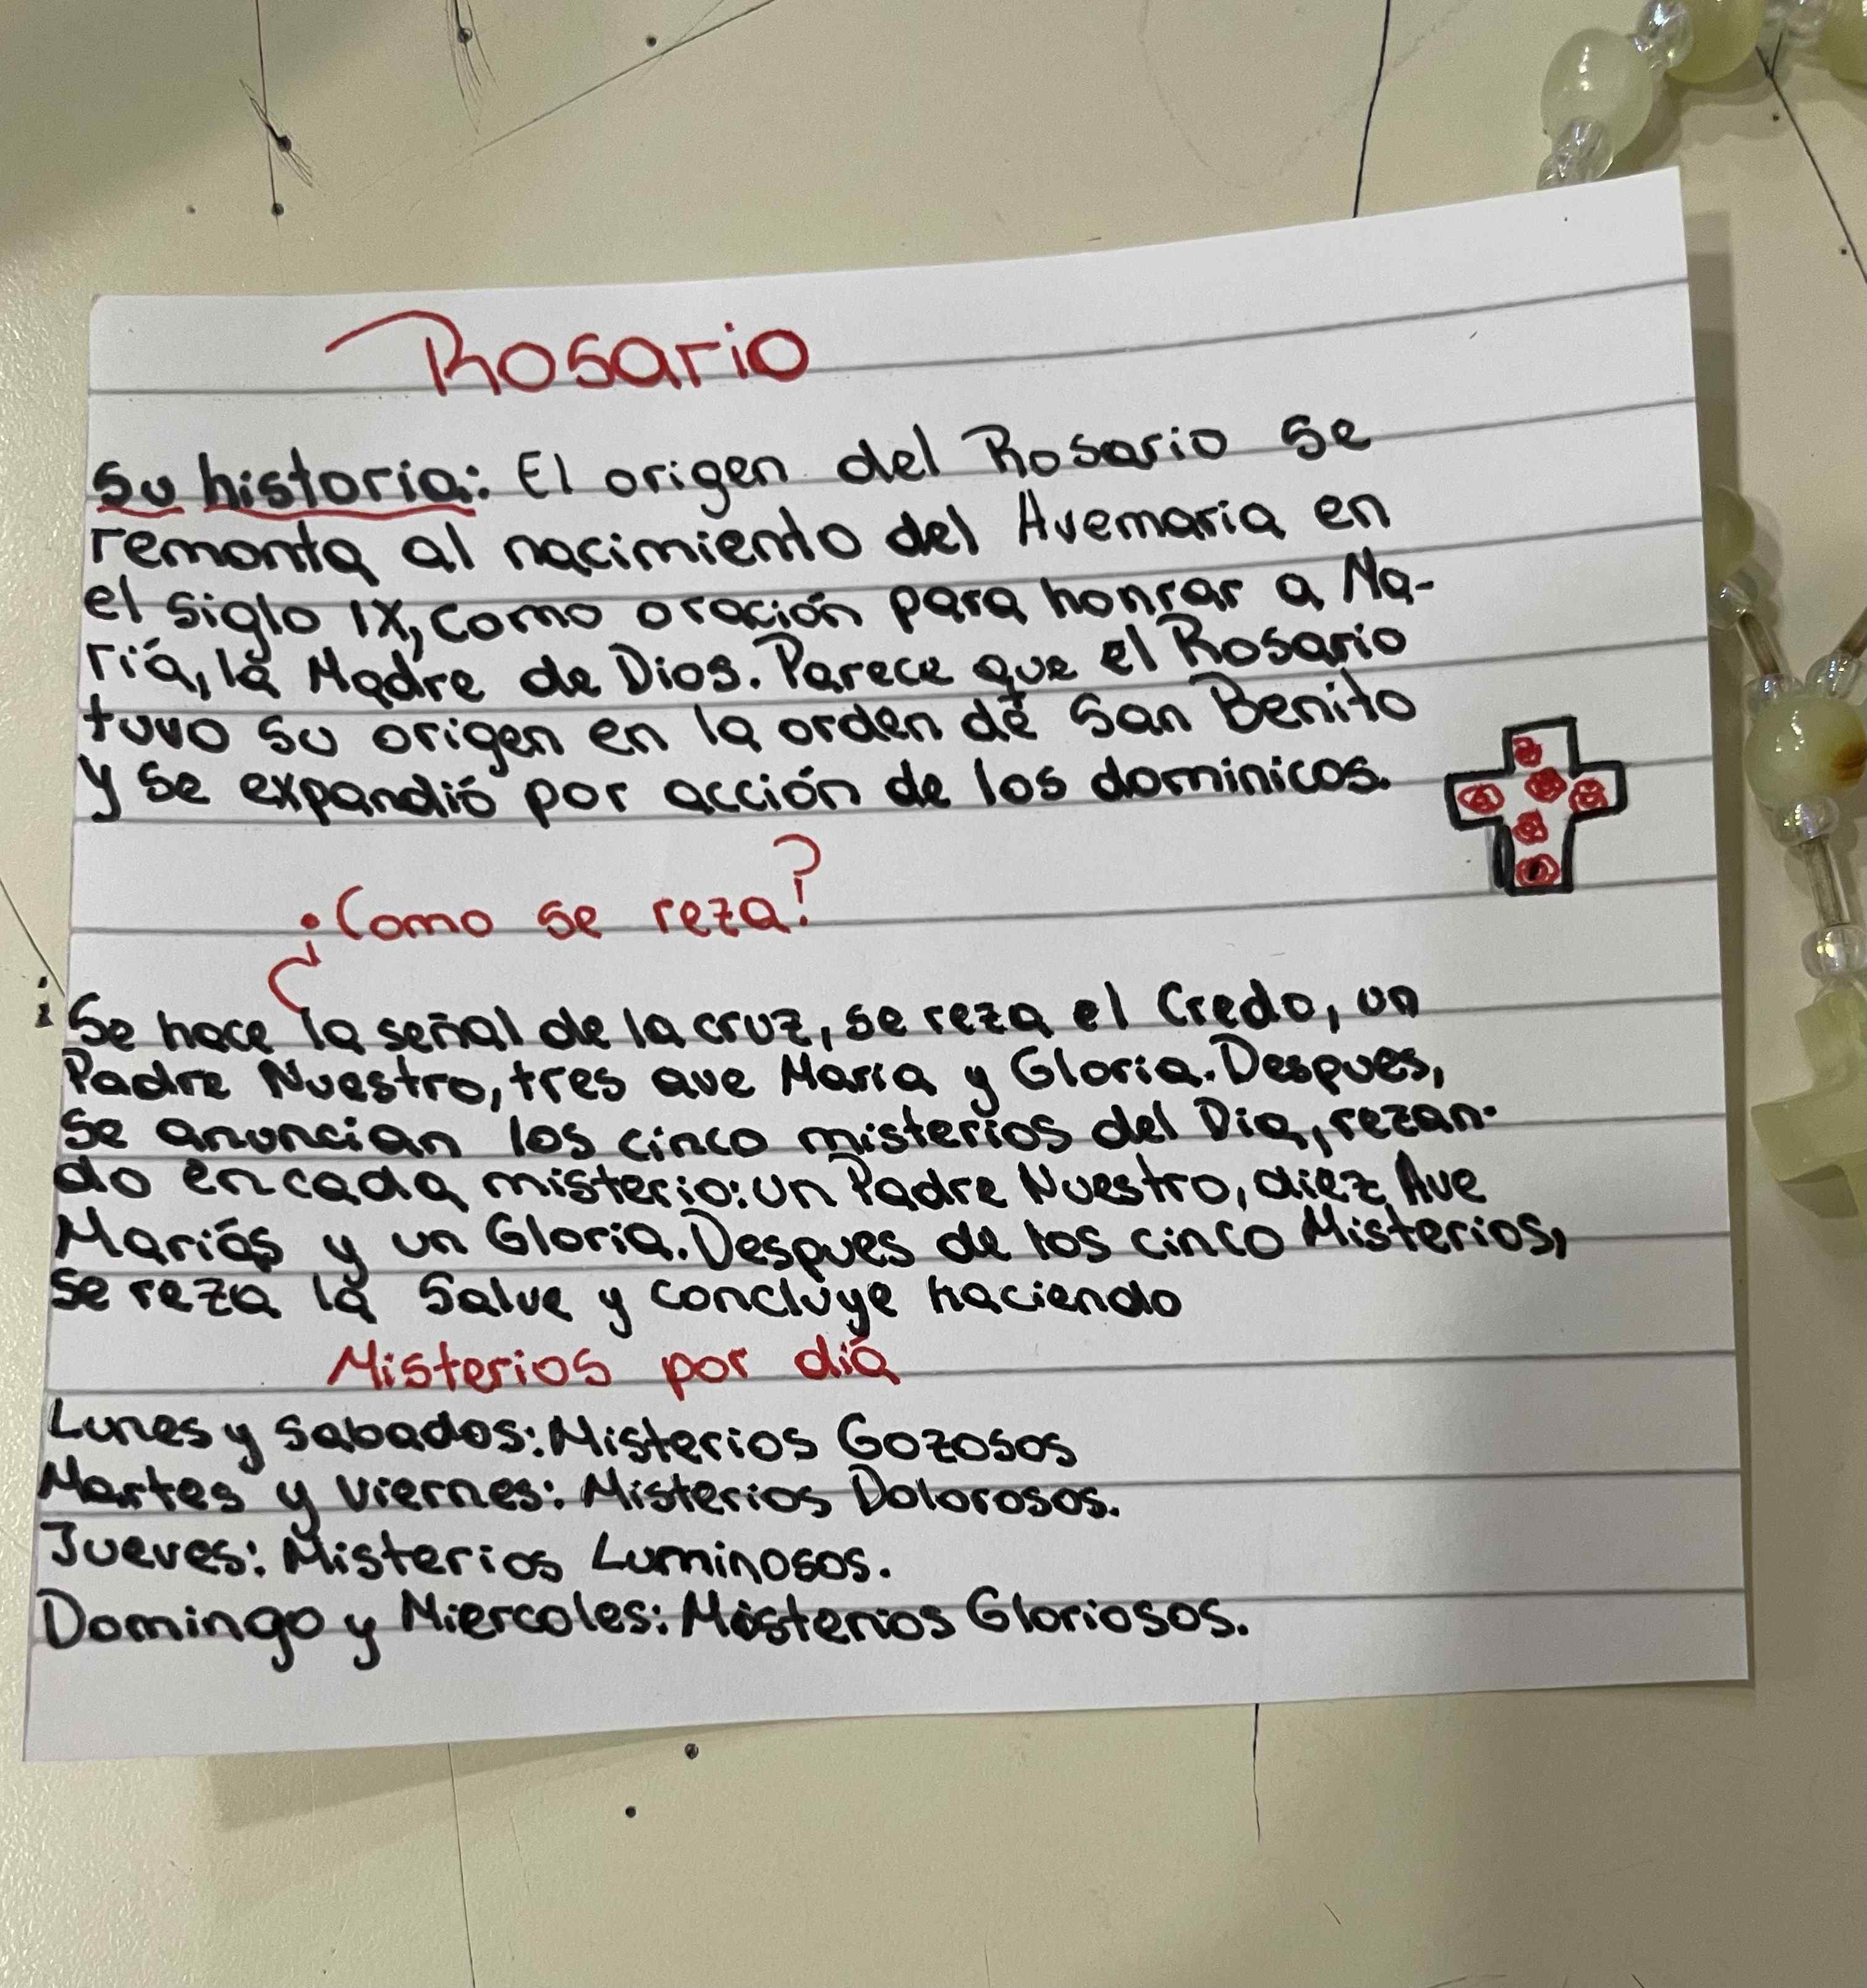 Rosario
Su historia: El origen del Rosario se
remonta al nacimiento del Avemaria en
el siglo IX, como oración para honrar a Ma-
ría, la Madre de Dios. Parece que el Rosario
tuvo su origen en la orden de San Benito
y se expandió por acción de los dominicos.
¿Como se reza?
Se hace la señal de la cruz, se reza el Credo, un
Padre Nuestro, tres ave Maria y Gloria. Despues,
se anuncian los cinco misterios del Dia, rezan-
do en cada misterio: un Padre Nuestro, diez Ave
Marías y un Gloria. Despues de los cinco Misterios,
se reza la Salve y concluye haciendo
Misterios por día
Lunes y Sabados: Misterios Gozosos
Martes y viernes: Misterios Dolorosos.
Jueves: Misterios Luminosos.
Domingo y Miercoles: Misterios Gloriosos.